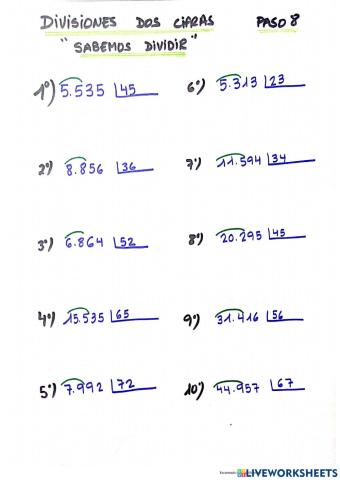 DIVISIONES DOS CIFRAS PASO 8
"SABEMOS DIVIDIR"
1º) 5.535 45
2º) 8.856 36
3º) 6.864 52
4º) 15.535 65
5º) 7.992 72
6º) 5.313 23
7º) 11.594 34
8º) 20.295 45
9º) 31.416 56
10º) 44.957 67
LIVEWORKSHEETS